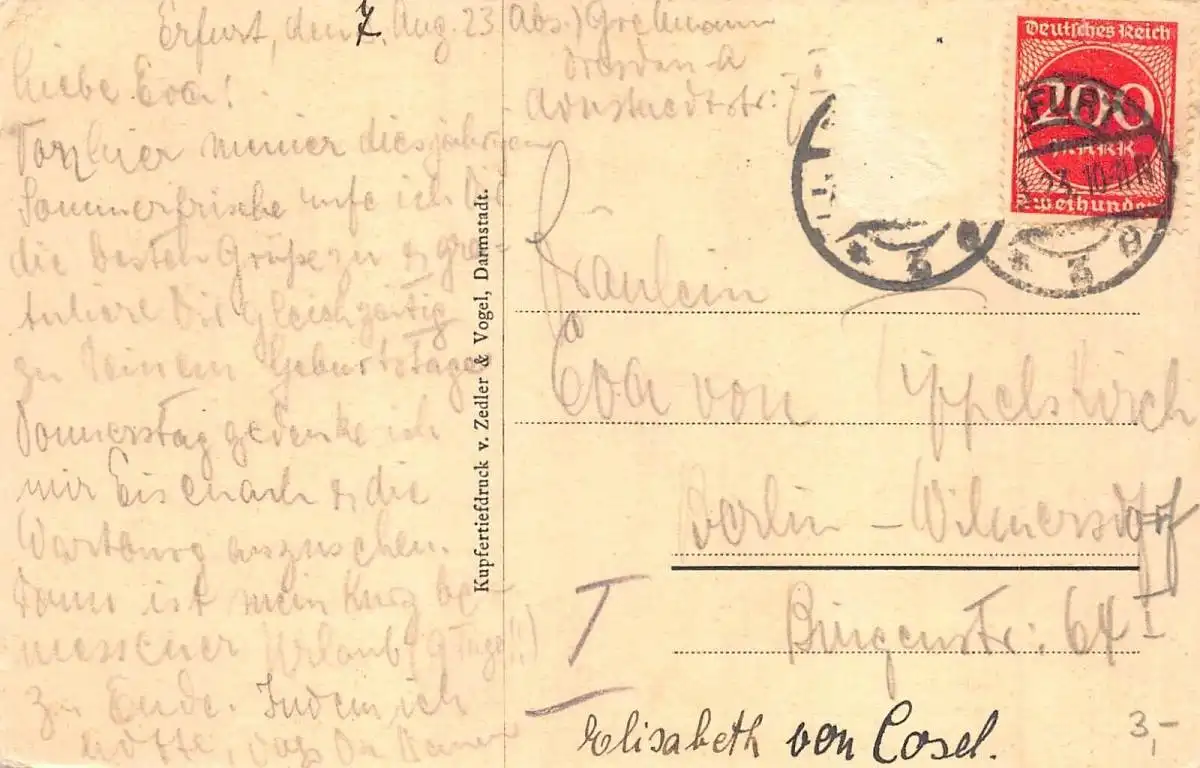 Erfurt, den 7. Aug. 23
Abs.) Grolmann
Dresden-A
Arnstaedtstr: 7
Liebe Eva!
Von hier meiner diesjährigen
Sommerfrische rufe ich Dir
die besten Grüße zu & gra-
tuliere Dir gleichzeitig
zu Deinem Geburtstage
Donnerstag gedenke ich
mir Eisenach & die
Wartburg anzusehen.
Dann ist mein kurz be-
messener Urlaub (9 Tage!!)
zu Ende. Indem ich
hoffe, dass Du Deinen
Kupfertiefdruck v. Zedler & Vogel, Darmstadt.
Deutsches Reich
200
MARK
Zweihundert
FURT
23. 10-11 N
* 3 e
* 3 e
Fräulein
Eva von Tippelskirch
Berlin – Wilmersdorf
Bingenstr: 64 I
I
Elisabeth von Cosel.
3,-